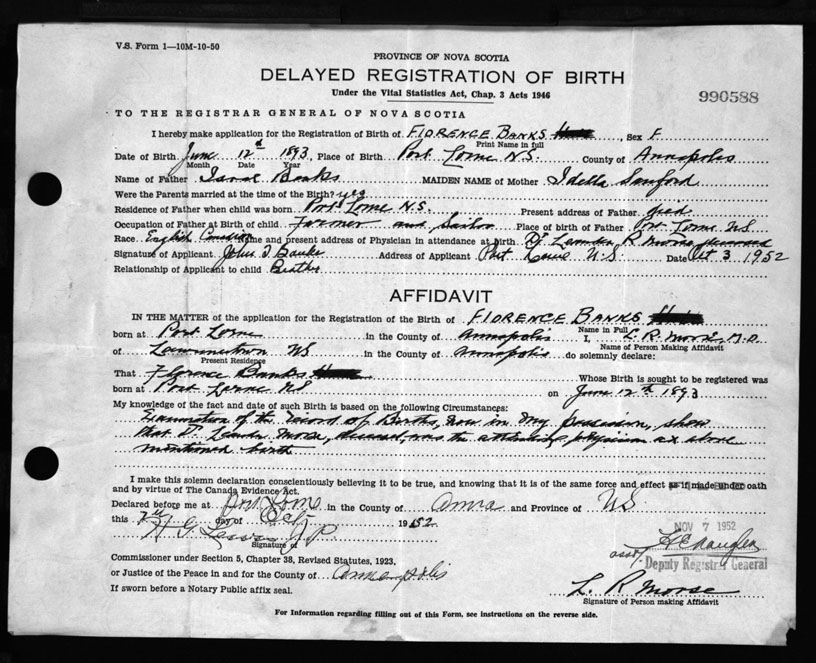 V.S. Form 1—10M-10-50
PROVINCE OF NOVA SCOTIA
DELAYED REGISTRATION OF BIRTH
Under the Vital Statistics Act, Chap. 3 Acts 1946
990588
TO THE REGISTRAR GENERAL OF NOVA SCOTIA
I hereby make application for the Registration of Birth of FlORENCE BANKS Sex F
Print Name in full
Date of Birth June 12th 1893, Place of Birth Port Lorne N.S. County of Annapolis
Month Date Year
Name of Father Banks MAIDEN NAME of Mother Idella Sanford
Were the Parents married at the time of the Birth? yes
Residence of Father when child was born Port Lorne N.S. Present address of Father died
Occupation of Father at Birth of child Farmer and Sailor Place of birth of Father Port Lorne NS
Race English Name and present address of Physician in attendance at birth Dr Morse deceased
Signature of Applicant John Banks Address of Applicant Port Lorne N.S. Date Oct 3 1952
Relationship of Applicant to child Brother
AFFIDAVIT
IN THE MATTER of the application for the Registration of the Birth of FlORENCE BANKS
Name in Full
born at Port Lorne in the County of Annapolis I, L. R. Morse, M.D.
Name of Person Making Affidavit
of Lawrencetown NS in the County of Annapolis do solemnly declare:
Present Residence
That Florence Banks Whose Birth is sought to be registered was
born at Port Lorne NS on June 12th 1893
My knowledge of the fact and date of such Birth is based on the following Circumstances:
Examination of the record of Births, now in my possession, show
that Dr. Morse, deceased, was the attending physician at above
mentioned birth
I make this solemn declaration conscientiously believing it to be true, and knowing that it is of the same force and effect as if made under oath
and by virtue of The Canada Evidence Act.
Declared before me at Port Lorne in the County of Anna and Province of NS
this 7th day of Oct 1952.
NOV 7 1952
H G J P
Signature of
asst.
Deputy Registrar General
Commissioner under Section 5, Chapter 38, Revised Statutes, 1923,
or Justice of the Peace in and for the County of Annapolis
L. R Morse
If sworn before a Notary Public affix seal.
Signature of Person making Affidavit
For Information regarding filling out of this Form, see instructions on the reverse side.